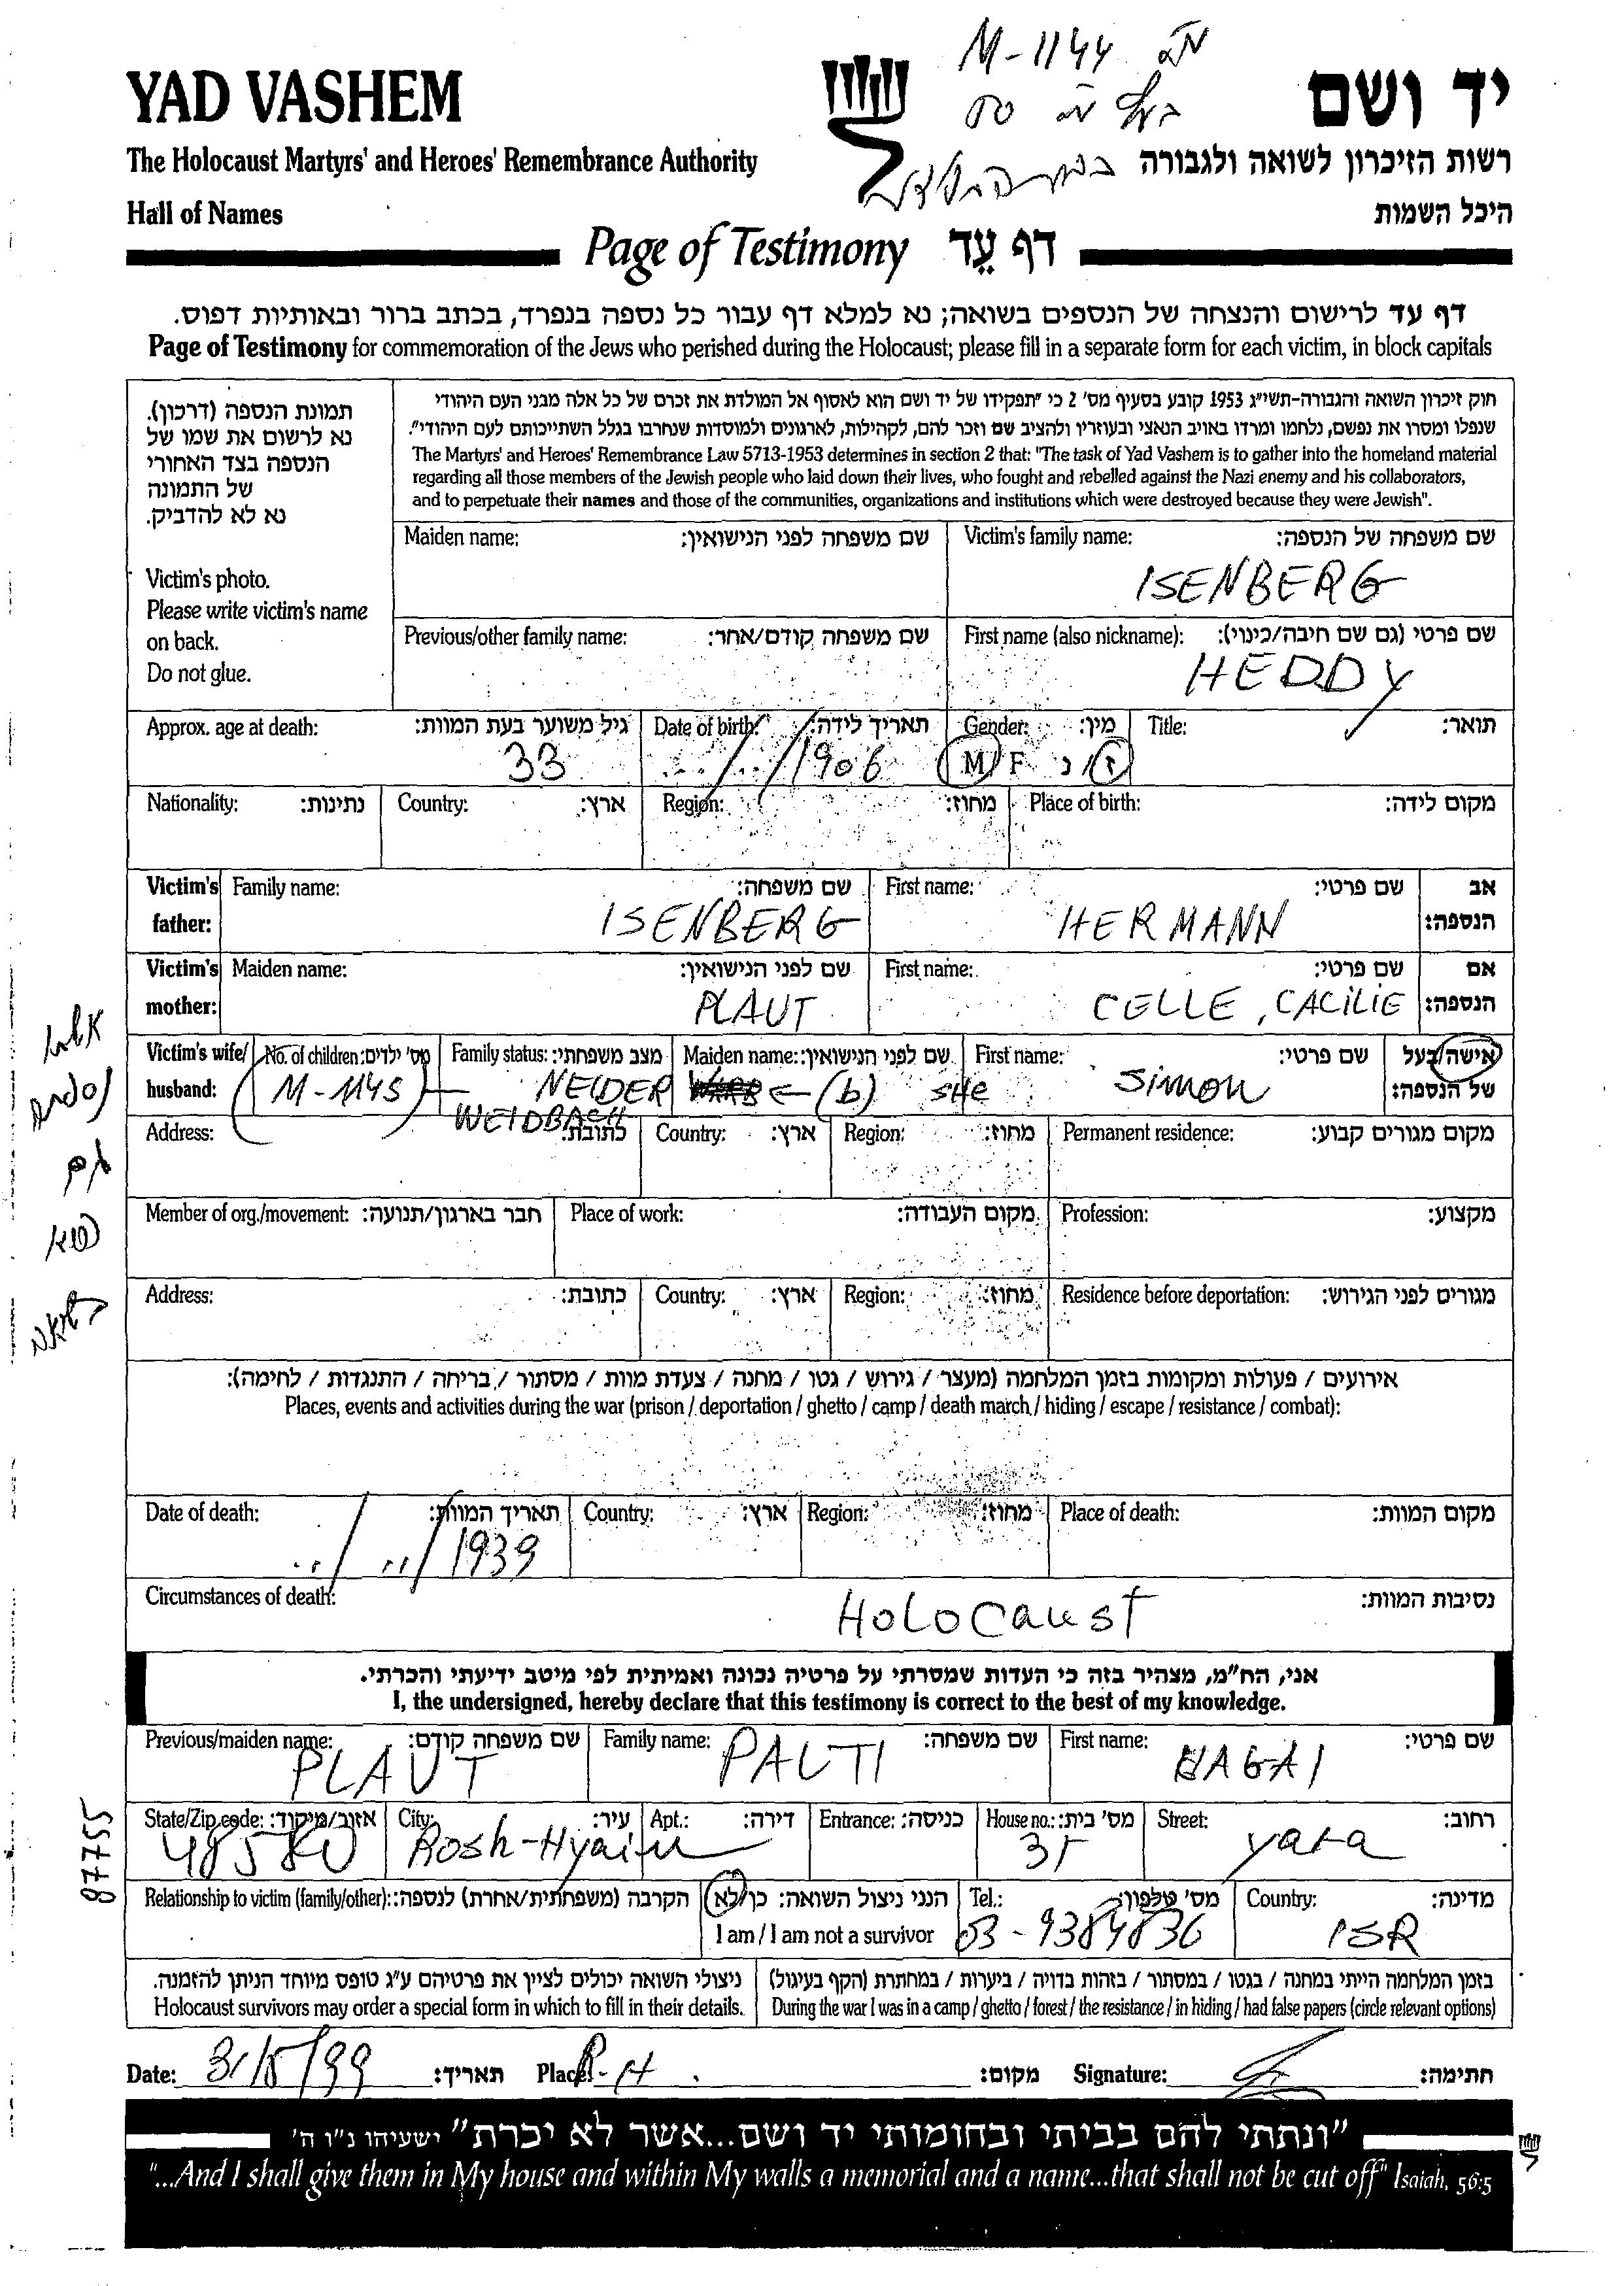 M-1144
YAD VASHEM
יד ושם
The Holocaust Martyrs' and Heroes' Remembrance Authority
רשות הזיכרון לשואה ולגבורה
Hall of Names
היכל השמות
Page of Testimony דף עֵד
דף עד לרישום והנצחה של הנספים בשואה; נא למלא דף עבור כל נספה בנפרד, בכתב ברור ובאותיות דפוס.
Page of Testimony for commemoration of the Jews who perished during the Holocaust; please fill in a separate form for each victim, in block capitals
תמונת הנספה (דרכון).
נא לרשום את שמו של
הנספה בצד האחורי
של התמונה
נא לא להדביק.
Victim's photo.
Please write victim's name
on back.
Do not glue.
חוק זיכרון השואה והגבורה-תשי"ג 1953 קובע בסעיף מס' 2 כי "תפקידו של יד ושם הוא לאסוף אל המולדת את זכרם של כל אלה מבני העם היהודי
שנפלו ומסרו את נפשם, נלחמו ומרדו באויב הנאצי ובעוזריו ולהציב שם וזכר להם, לקהילות, לארגונים ולמוסדות שנחרבו בגלל השתייכותם לעם היהודי".
The Martyrs' and Heroes' Remembrance Law 5713-1953 determines in section 2 that: "The task of Yad Vashem is to gather into the homeland material
regarding all those members of the Jewish people who laid down their lives, who fought and rebelled against the Nazi enemy and his collaborators,
and to perpetuate their names and those of the communities, organizations and institutions which were destroyed because they were Jewish".
Maiden name: שם משפחה לפני הנישואין: Victim's family name: שם משפחה של הנספה:
ISENBERG
Previous/other family name: שם משפחה קודם/אחר: First name (also nickname): שם פרטי (גם שם חיבה/כינוי):
HEDDY
Approx. age at death: גיל משוער בעת המוות: Date of birth: תאריך לידה: Gender: מין: Title: תואר:
33 ../../1906 M/F ז/נ
Nationality: נתינות: Country: ארץ: Region: מחוז: Place of birth: מקום לידה:
Victim's father: Family name: שם משפחה: First name: שם פרטי: אב הנספה:
ISENBERG HERMANN
Victim's mother: Maiden name: שם לפני הנישואין: First name: שם פרטי: אם הנספה:
PLAUT CELLE, CACILIE
Victim's wife/ husband: No. of children: מס' ילדים: Family status: מצב משפחתי: Maiden name: שם לפני הנישואין: First name: שם פרטי: אישה/בעל של הנספה:
(M-1145) NEIDER ← (b) SHE SIMON
WEIDBACH
Address: כתובת: Country: ארץ: Region: מחוז: Permanent residence: מקום מגורים קבוע:
Member of org./movement: חבר בארגון/תנועה: Place of work: מקום העבודה: Profession: מקצוע:
Address: כתובת: Country: ארץ: Region: מחוז: Residence before deportation: מגורים לפני הגירוש:
אירועים / פעולות ומקומות בזמן המלחמה (מעצר / גירוש / גטו / מחנה / צעדת מוות / מסתור / בריחה / התנגדות / לחימה):
Places, events and activities during the war (prison / deportation / ghetto / camp / death march / hiding / escape / resistance / combat):
Date of death: תאריך המוות: Country: ארץ: Region: מחוז: Place of death: מקום המוות:
../../1939
Circumstances of death: נסיבות המוות:
HOLOCAUST
אני, הח"מ, מצהיר בזה כי העדות שמסרתי על פרטיה נכונה ואמיתית לפי מיטב ידיעתי והכרתי.
I, the undersigned, hereby declare that this testimony is correct to the best of my knowledge.
Previous/maiden name: שם משפחה קודם: Family name: שם משפחה: First name: שם פרטי:
PLAUT PALTI HAGAI
State/Zip code: אזור/מיקוד: City: עיר: Apt.: דירה: Entrance: כניסה: House no.: מס' בית: Street: רחוב:
48580 Rosh-Hyain 31 yara
87755
Relationship to victim (family/other): הקרבה (משפחתית/אחרת) לנספה: הנני ניצול השואה: כן/לא Tel.: מס' טלפון: Country: מדינה:
I am / I am not a survivor 03-9384836 ISR
ניצולי השואה יכולים לציין את פרטיהם ע"ג טופס מיוחד הניתן להזמנה.
Holocaust survivors may order a special form in which to fill in their details.
בזמן המלחמה הייתי במחנה / בגטו / במסתור / בזהות בדויה / ביערות / במחתרת (הקף בעיגול)
During the war I was in a camp / ghetto / forest / the resistance / in hiding / had false papers (circle relevant options)
Date: 31/5/99 תאריך: Place: R-H מקום: Signature: חתימה:
"ונתתי להם בביתי ובחומותי יד ושם...אשר לא יכרת" ישעיהו נ"ו ה'
"...And I shall give them in My house and within My walls a memorial and a name...that shall not be cut off" Isaiah, 56:5